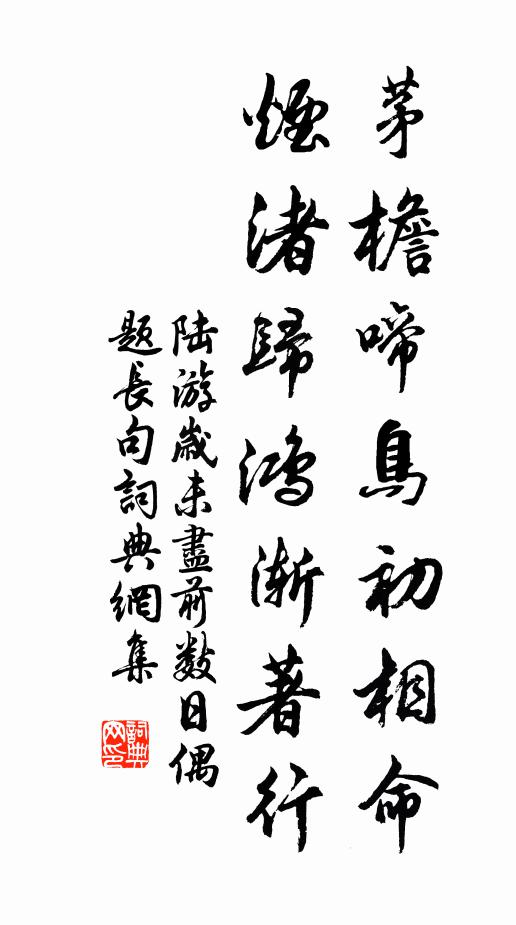 茅檐啼鳥初相命
煙渚歸鴻漸著行
陆游歲未盡前數日偶
題長句詞典網集
詞典
网印